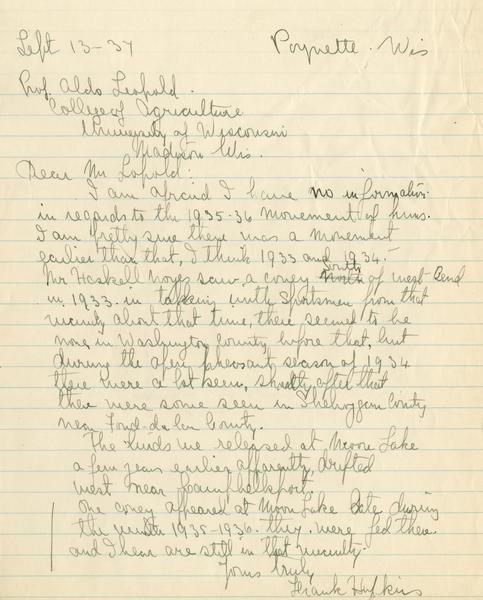 Sept 13-37 Poynette. Wis
Prof. Aldo Leopold.
College of Agriculture
University of Wisconsin
Madison Wis.
Dear Mr Lopold:
I am afraid I have no information
in regards to the 1935-36 movement of huns.
I am pretty sure there was a movement
earlier than that, I think 1933 and 1934.
Mr Haskell Noyes saw a covey South of West Bend
in 1933. in talking with Sportsmen from that
vicinity about that time, there seemed to be
none in Washington County before that, but
during the open pheasant season of 1934
there were a lot seen, shortly after that
there were some seen in Sheboygan County
near Fond-du-lac County.
The birds we released at Moon Lake
a few years earlier apparently drifted
west near Campbellsport,
One covey appeared at Moon Lake late during
the winter 1935-1936. they were fed there
and I hear are still in that vicinity.
Yours truly,
Frank Hopkins